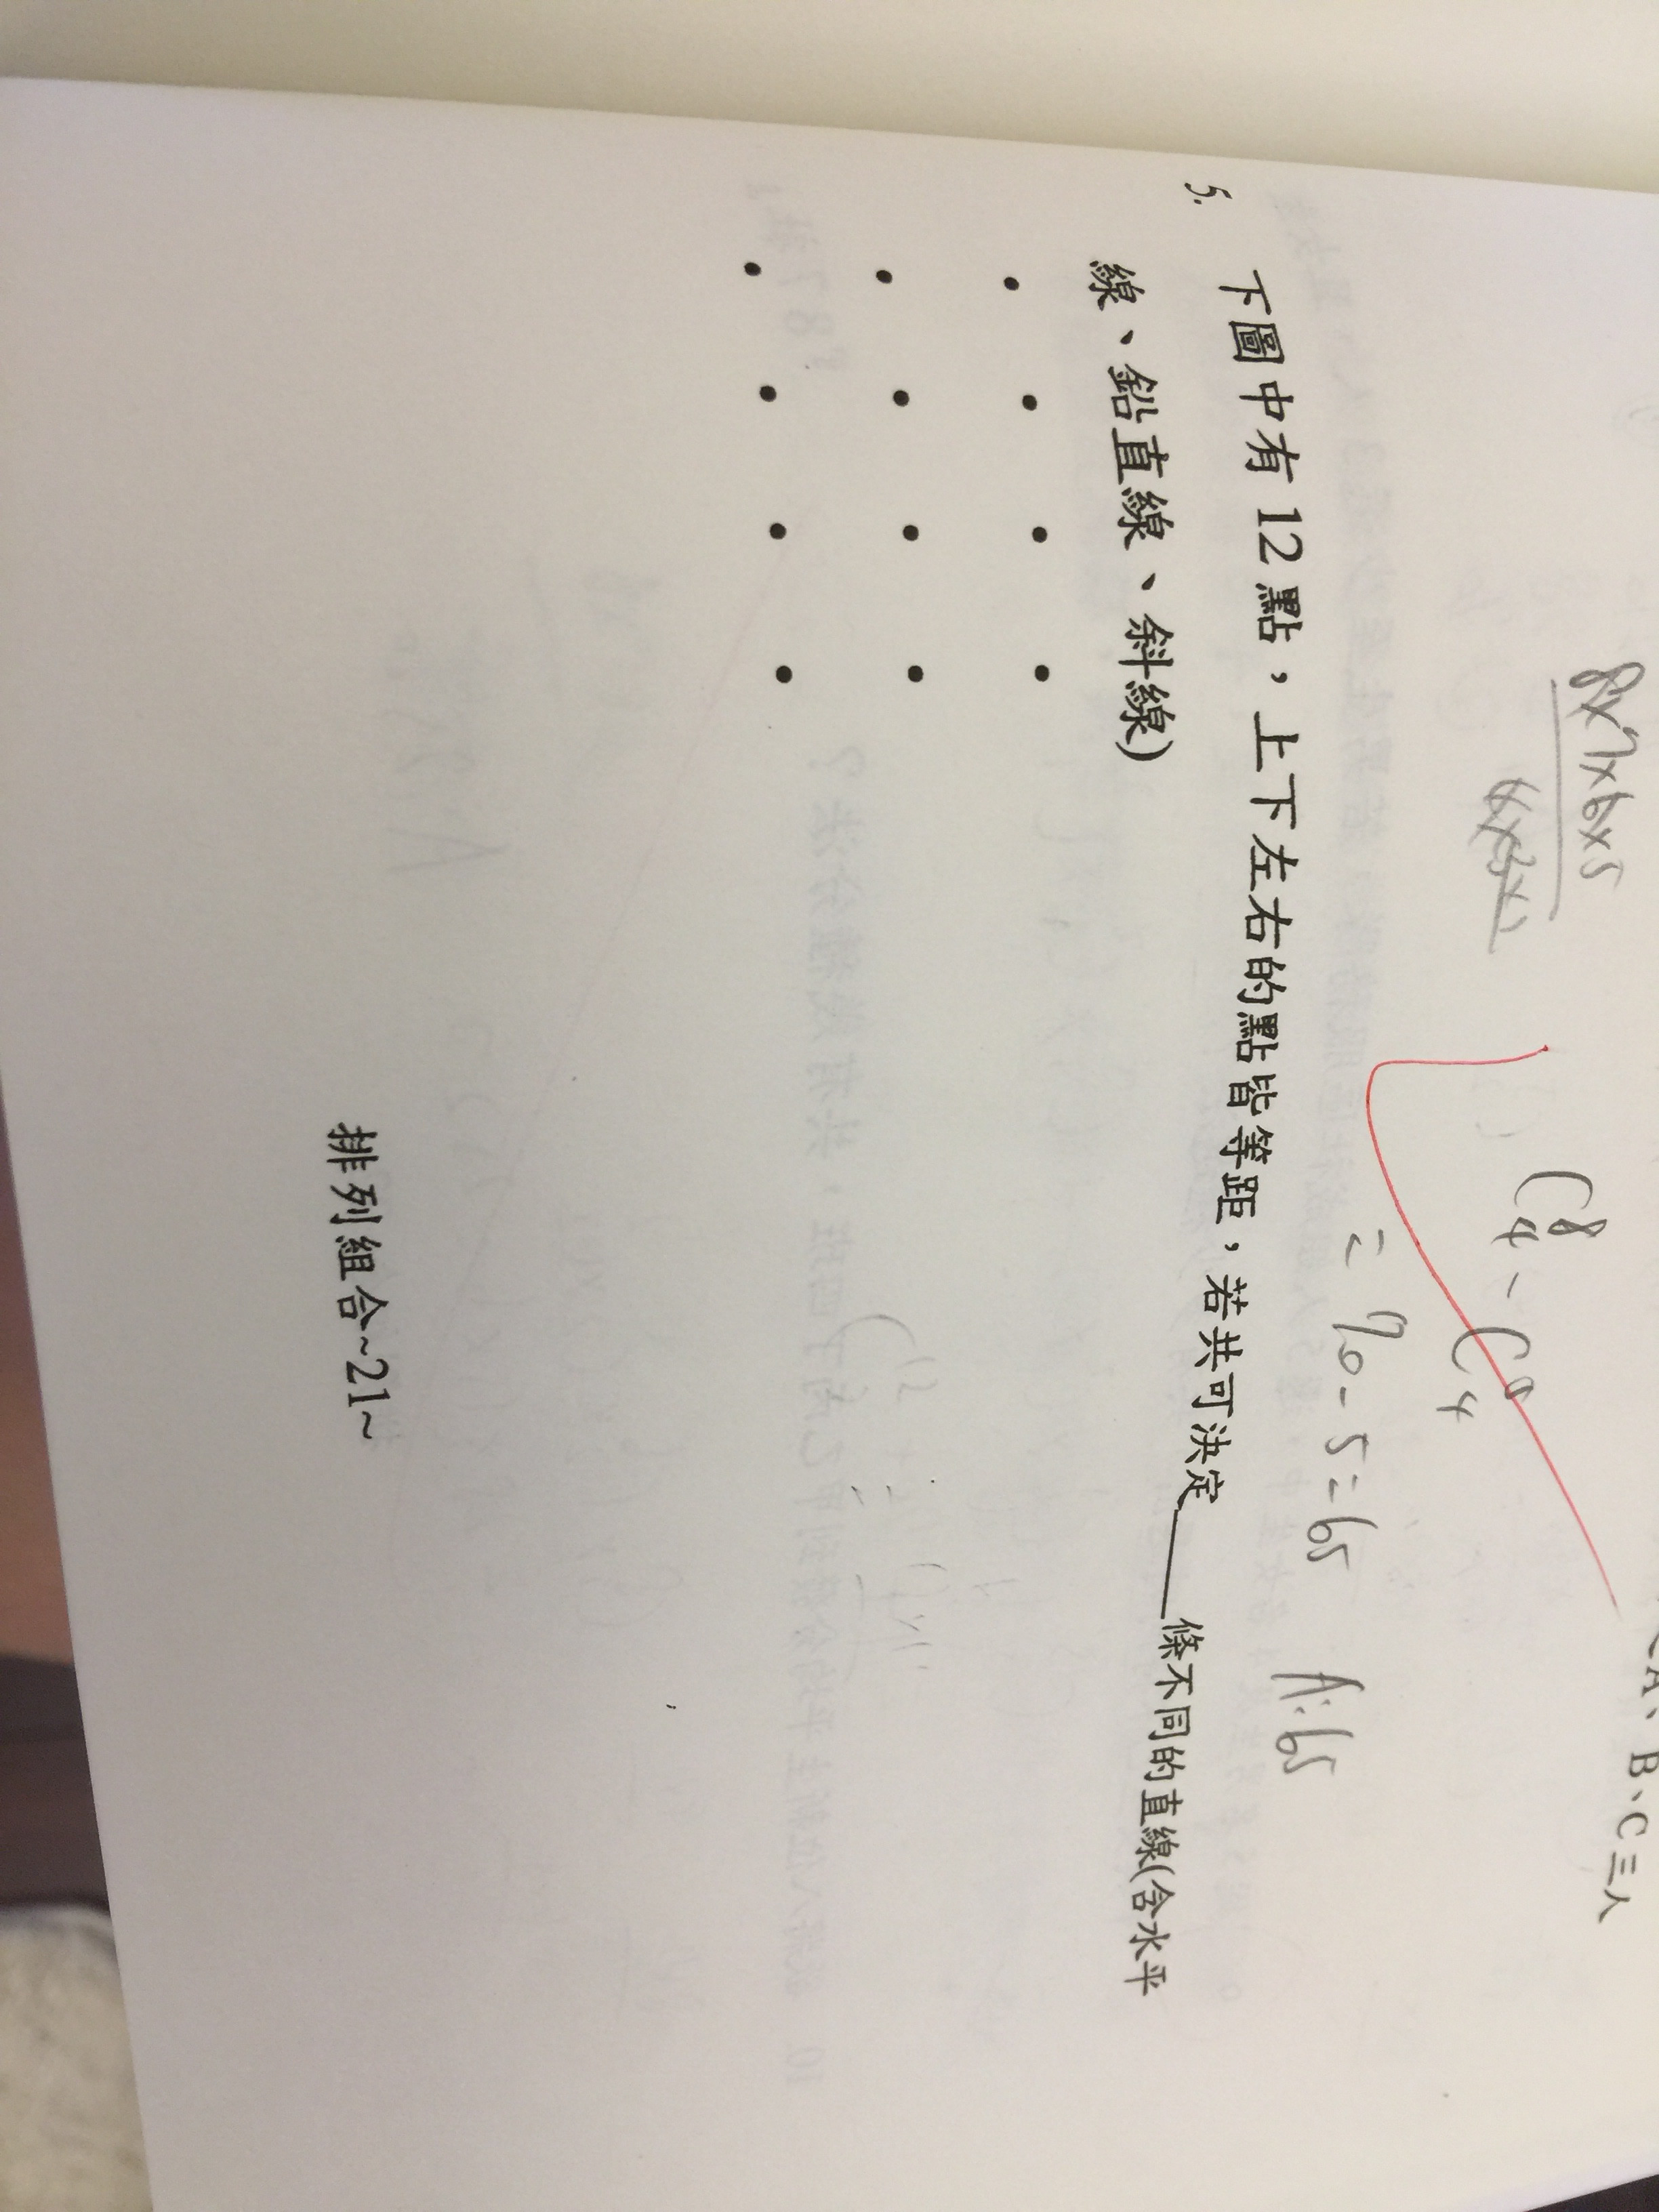 8×7×6×5
4×3×2
C⁸₄ - C
= 70 - 5 = 65
A:65
A、B、C三人
5.
下圖中有12點，上下左右的點皆等距，若共可決定____條不同的直線(含水平
線、鉛直線、斜線)
排列組合~21~